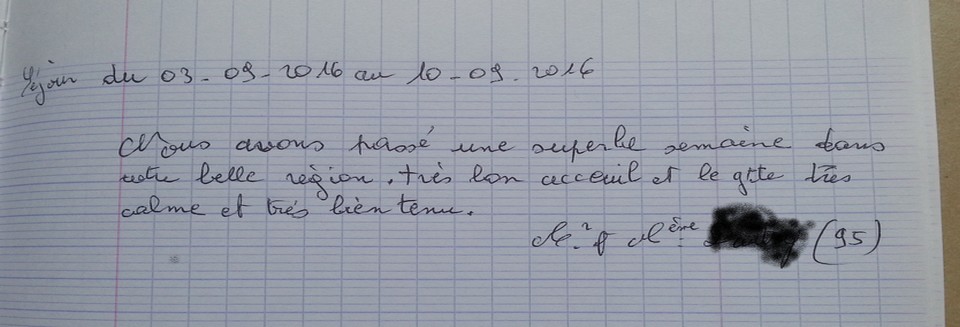 Séjour du 03-09-2016 au 10-09-2016
Nous avons passé une superbe semaine dans
votre belle région, très bon acceuil et le gîte très
calme et très bien tenu.
(95)